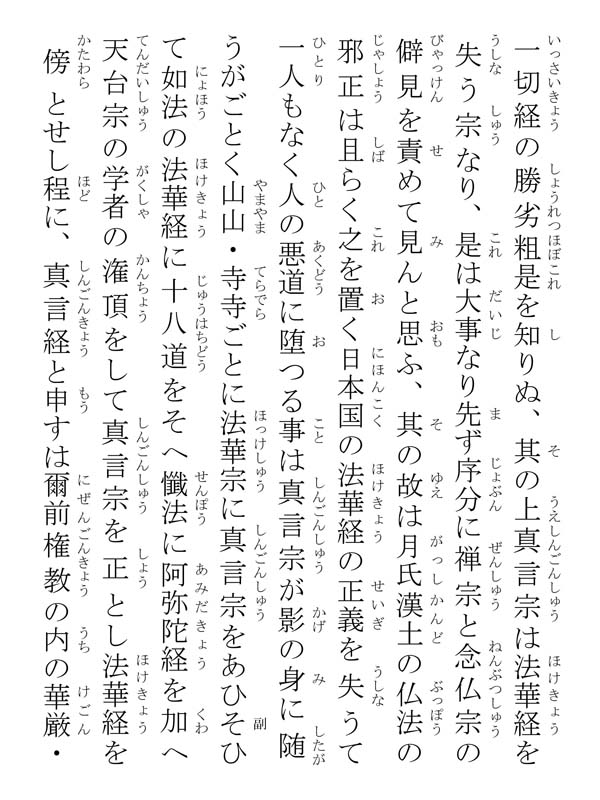 一切経の勝劣粗是を知りぬ、其の上真言宗は法華経を
失う宗なり、是は大事なり先ず序分に禅宗と念仏宗の
僻見を責めて見んと思ふ、其の故は月氏漢土の仏法の
邪正は且らく之を置く日本国の法華経の正義を失うて
一人もなく人の悪道に堕つる事は真言宗が影の身に随
うがごとく山山・寺寺ごとに法華宗に真言宗をあひそひ
て如法の法華経に十八道をそへ懺法に阿弥陀経を加へ
天台宗の学者の潅頂をして真言宗を正とし法華経を
傍とせし程に、真言経と申すは爾前権教の内の華厳・